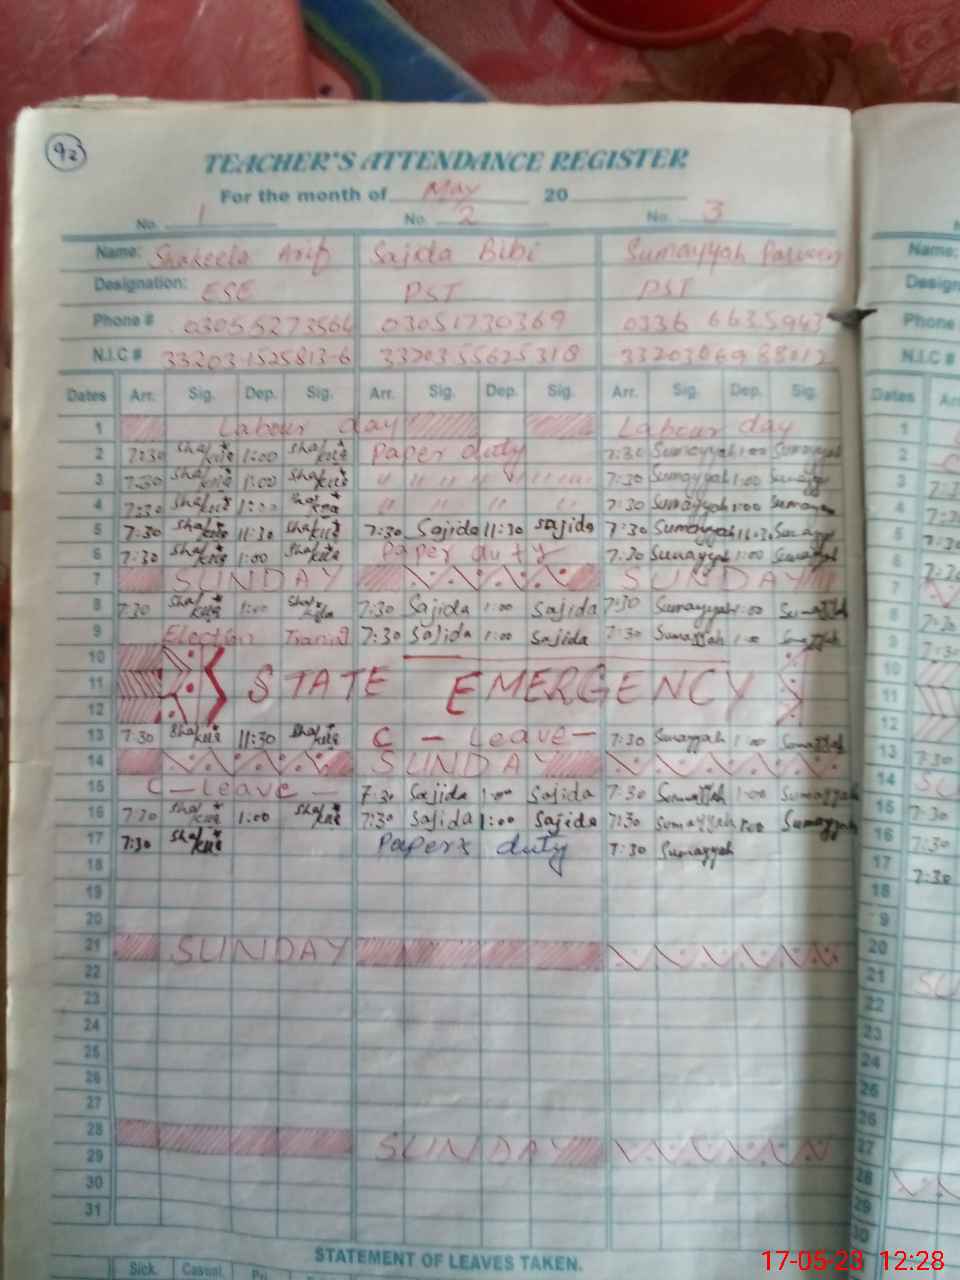 92
TEACHER'S ATTENDANCE REGISTER
For the month of May 20
No. 1 No. 2 No. 3
Name: Shakeela Arif Sajida Bibi Sumayyah Parveen
Designation: ESE PST PST
Phone # 03055273564 03051730369 0336 6635943
N.I.C # 33203-1525813-6 3320355625318
Dates Arr. Sig. Dep. Sig. Arr. Sig. Dep. Sig. Arr. Sig. Dep. Sig.
1 Labour day Labour day
2 7:30 Shakeela 1:00 Shakeela Paper duty 7:30 Sumayyah 1:00 Sumayyah
3 7:30 Shakeela 1:00 Shakeela " " " " " 7:30 Sumayyah 1:00 Sumayya
4 7:30 Shakeela 1:00 " " " " 7:30 Sumayyah 1:00 Sumayya
5 7:30 11:30 7:30 Sajida 11:30 Sajida 7:30 Sumayyah 11:30
6 7:30 1:00 Paper duty 7:30 Sumayyah 1:00 Sumayyah
7 SUNDAY SUNDAY
8 7:30 1:00 7:30 Sajida 1:00 Sajida 7:30 Sumayyah 1:00
9 Election 7:30 Sajida 1:00 Sajida 7:30 Sumayyah 1:00
10
11 STATE EMERGENCY
12
13 7:30 11:30 C - Leave - 7:30 Sumayyah 1:00
14 SUNDAY
15 C - Leave - 7:30 Sajida 1:00 Sajida 7:30 Sumayyah 1:00 Sumayyah
16 7:30 1:00 7:30 Sajida 1:00 Sajida 7:30 Sumayyah 1:00 Sumayyah
17 7:30 Papers duty 7:30 Sumayyah
18
19
20
21 SUNDAY
22
23
24
25
26
27
28
29 SUNDAY
30
31
STATEMENT OF LEAVES TAKEN.
Sick. Casual.
Name:
Phone #
N.I.C #
Dates
1
2
3
4
5
6
7
8
9
10
11
12
13 7:30
14
15
16 7:30
17 7:30
18
9
20
21
22
23
24
26
26
27
28
29
30
17-05-23 12:28